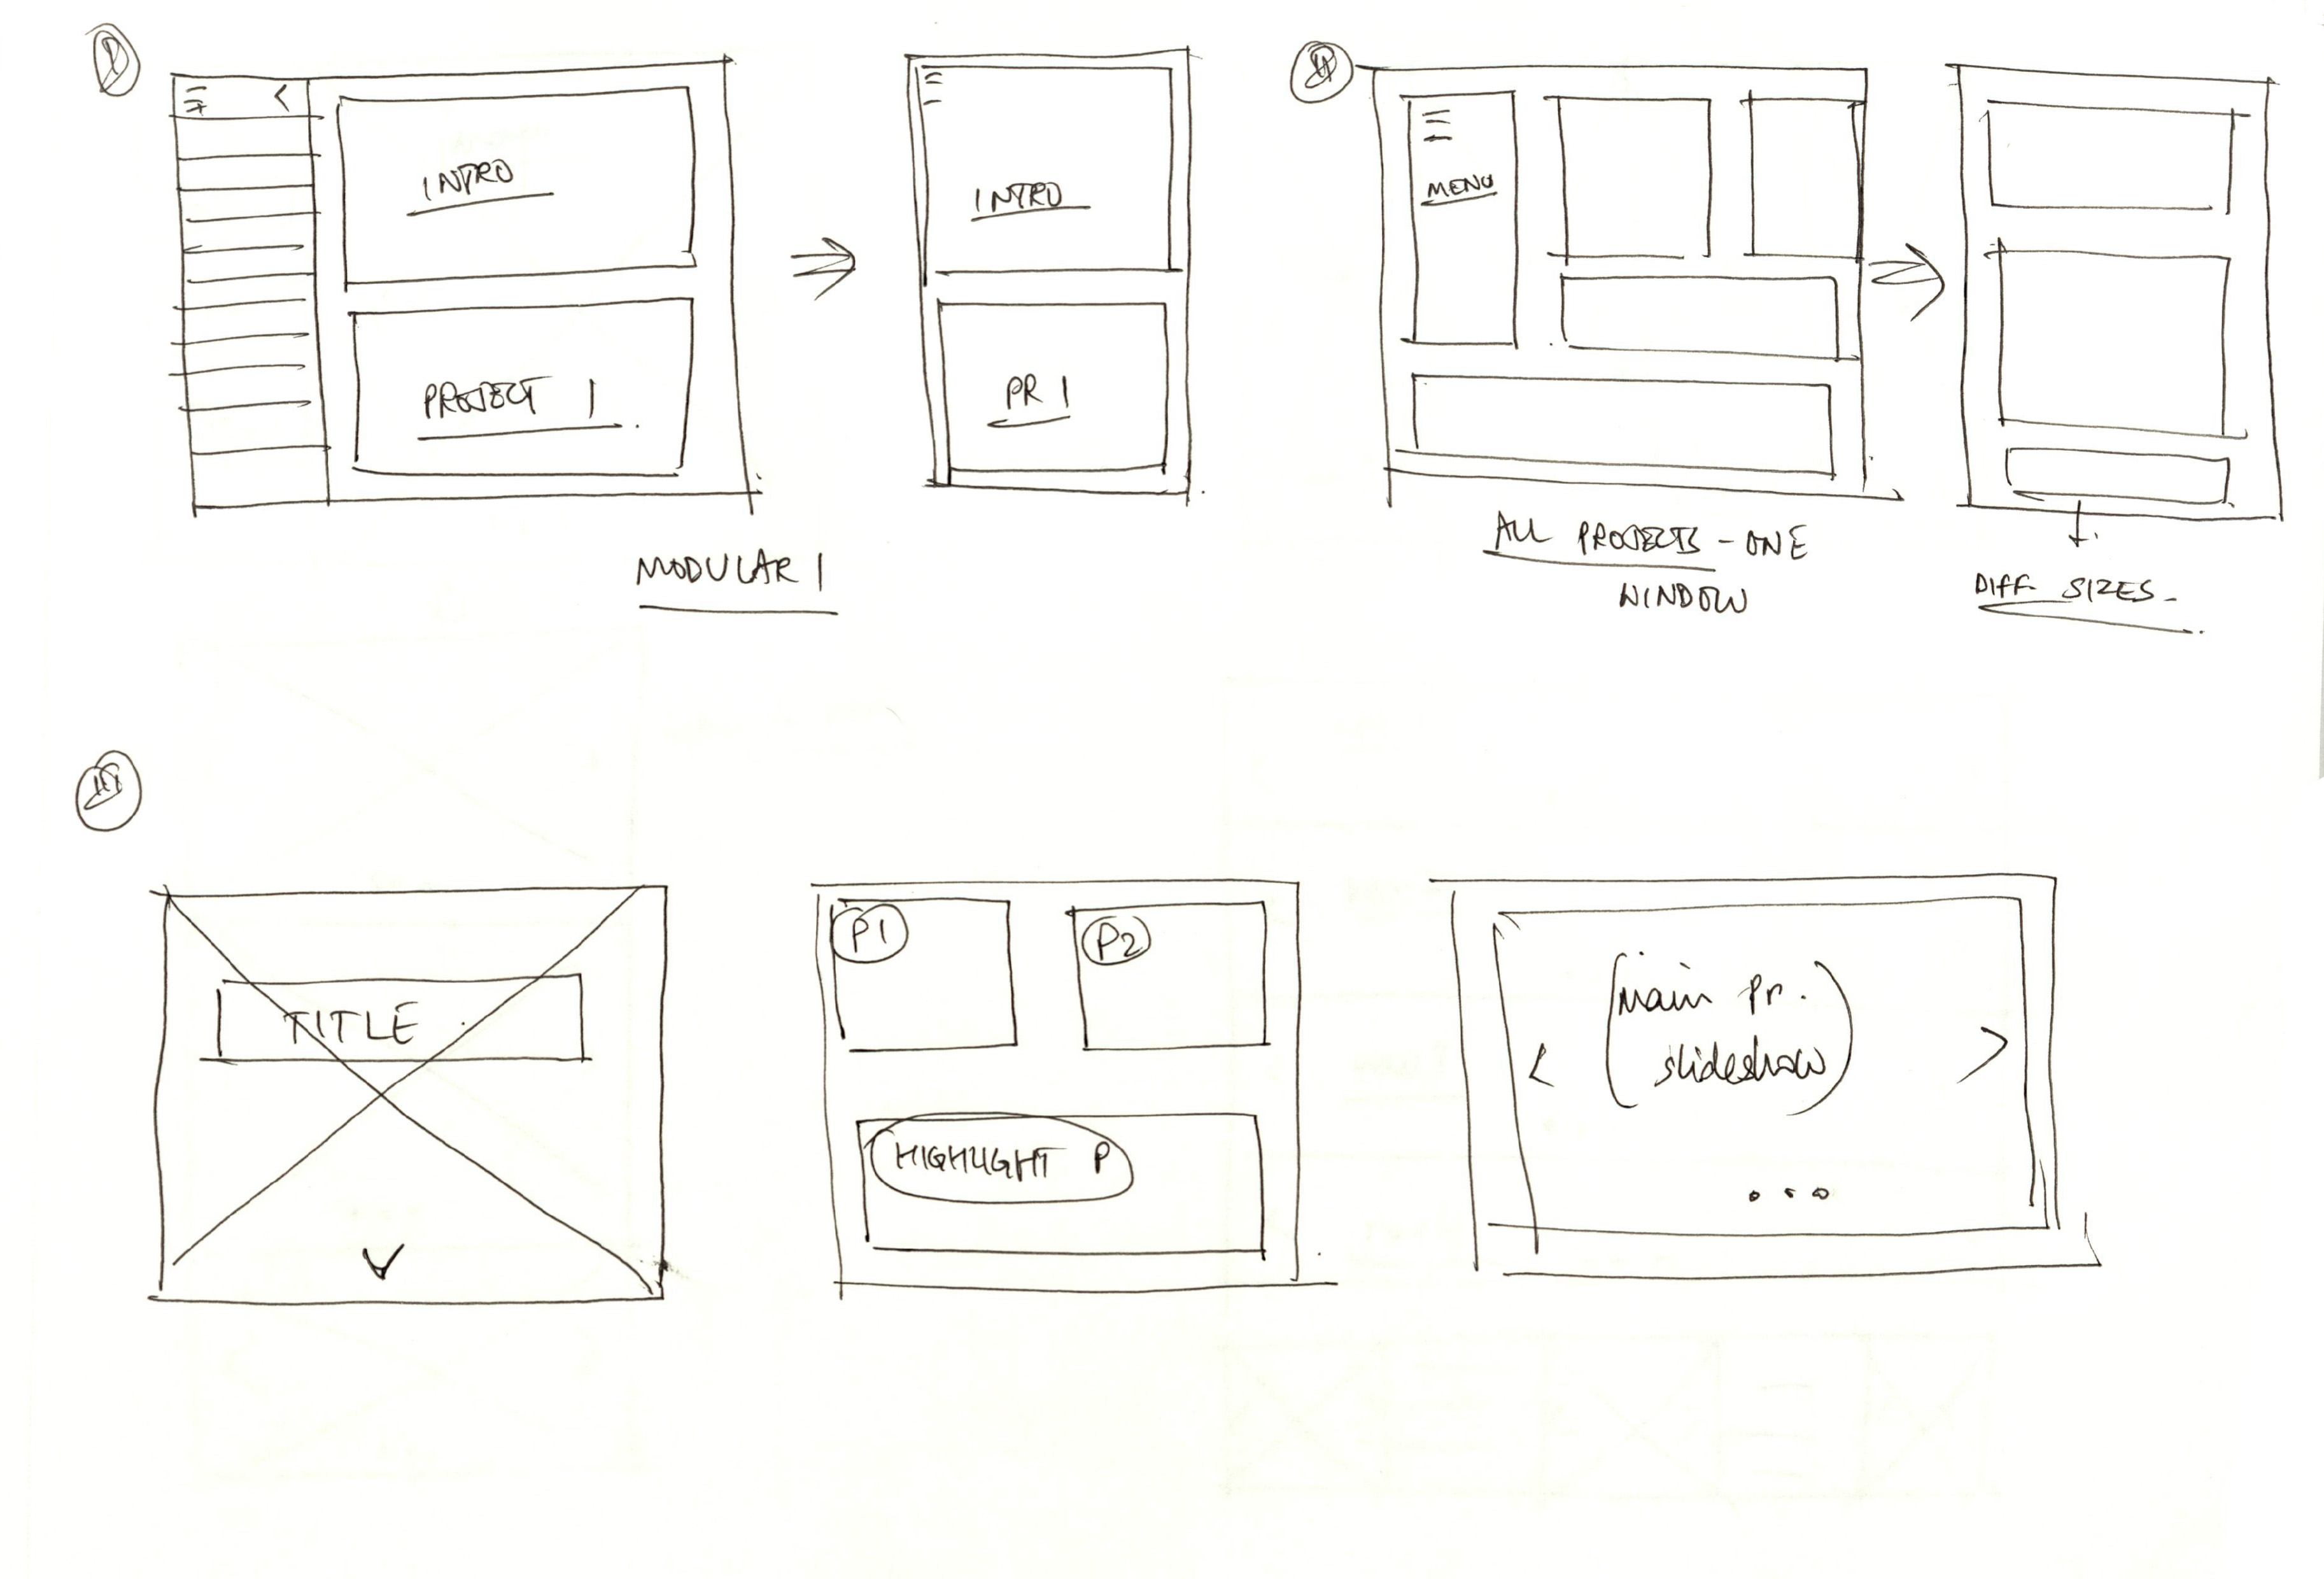 I
INTRO
PROJECT 1
INTRO
PR 1
MODULAR 1
II
MENU
ALL PROJECTS - ONE
WINDOW
DIFF. SIZES
III
TITLE
P1
P2
HIGHLIGHT P
(main pr.
slideshow)